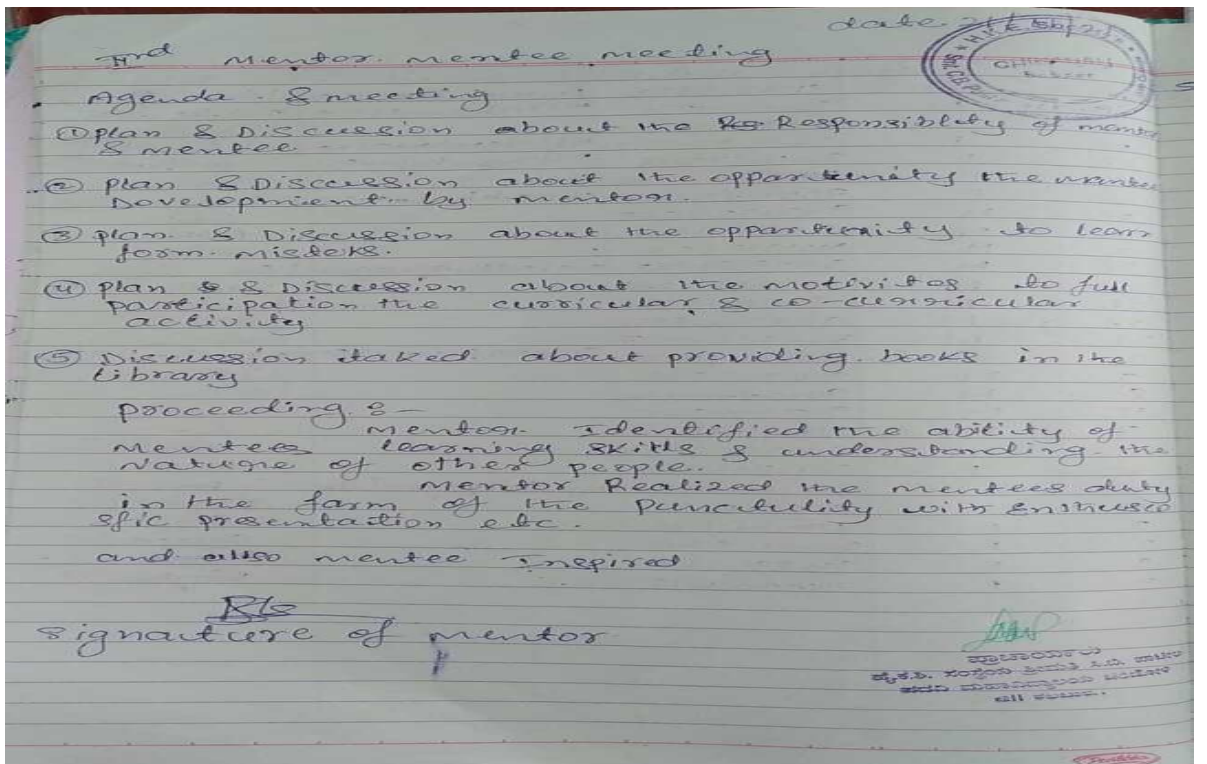 date
IIIrd Mentor mentee meeting
Agenda & meeting
① plan & Discussion about the Responsiblety of mentor
& mentee
② plan & Discussion about the oppartunity the mentee
Dovelopment by mentor.
③ plan & Discussion about the oppartunity to learn
form misteks.
④ plan & Discussion about the motivites to full
participation the curricular & co-curricular
activity
⑤ Discussion taked about providing books in the
library
proceeding :-
mentor Identified the ability of
mentees learning skills & understanding the
Nature of other people.
mentor Realized the mentees duty
in the farm of the Punctulity with Enthusia
sfic presentaction etc.
and also mentee Inspired
signature of mentor
ಪ್ರಾಚಾರ್ಯರು